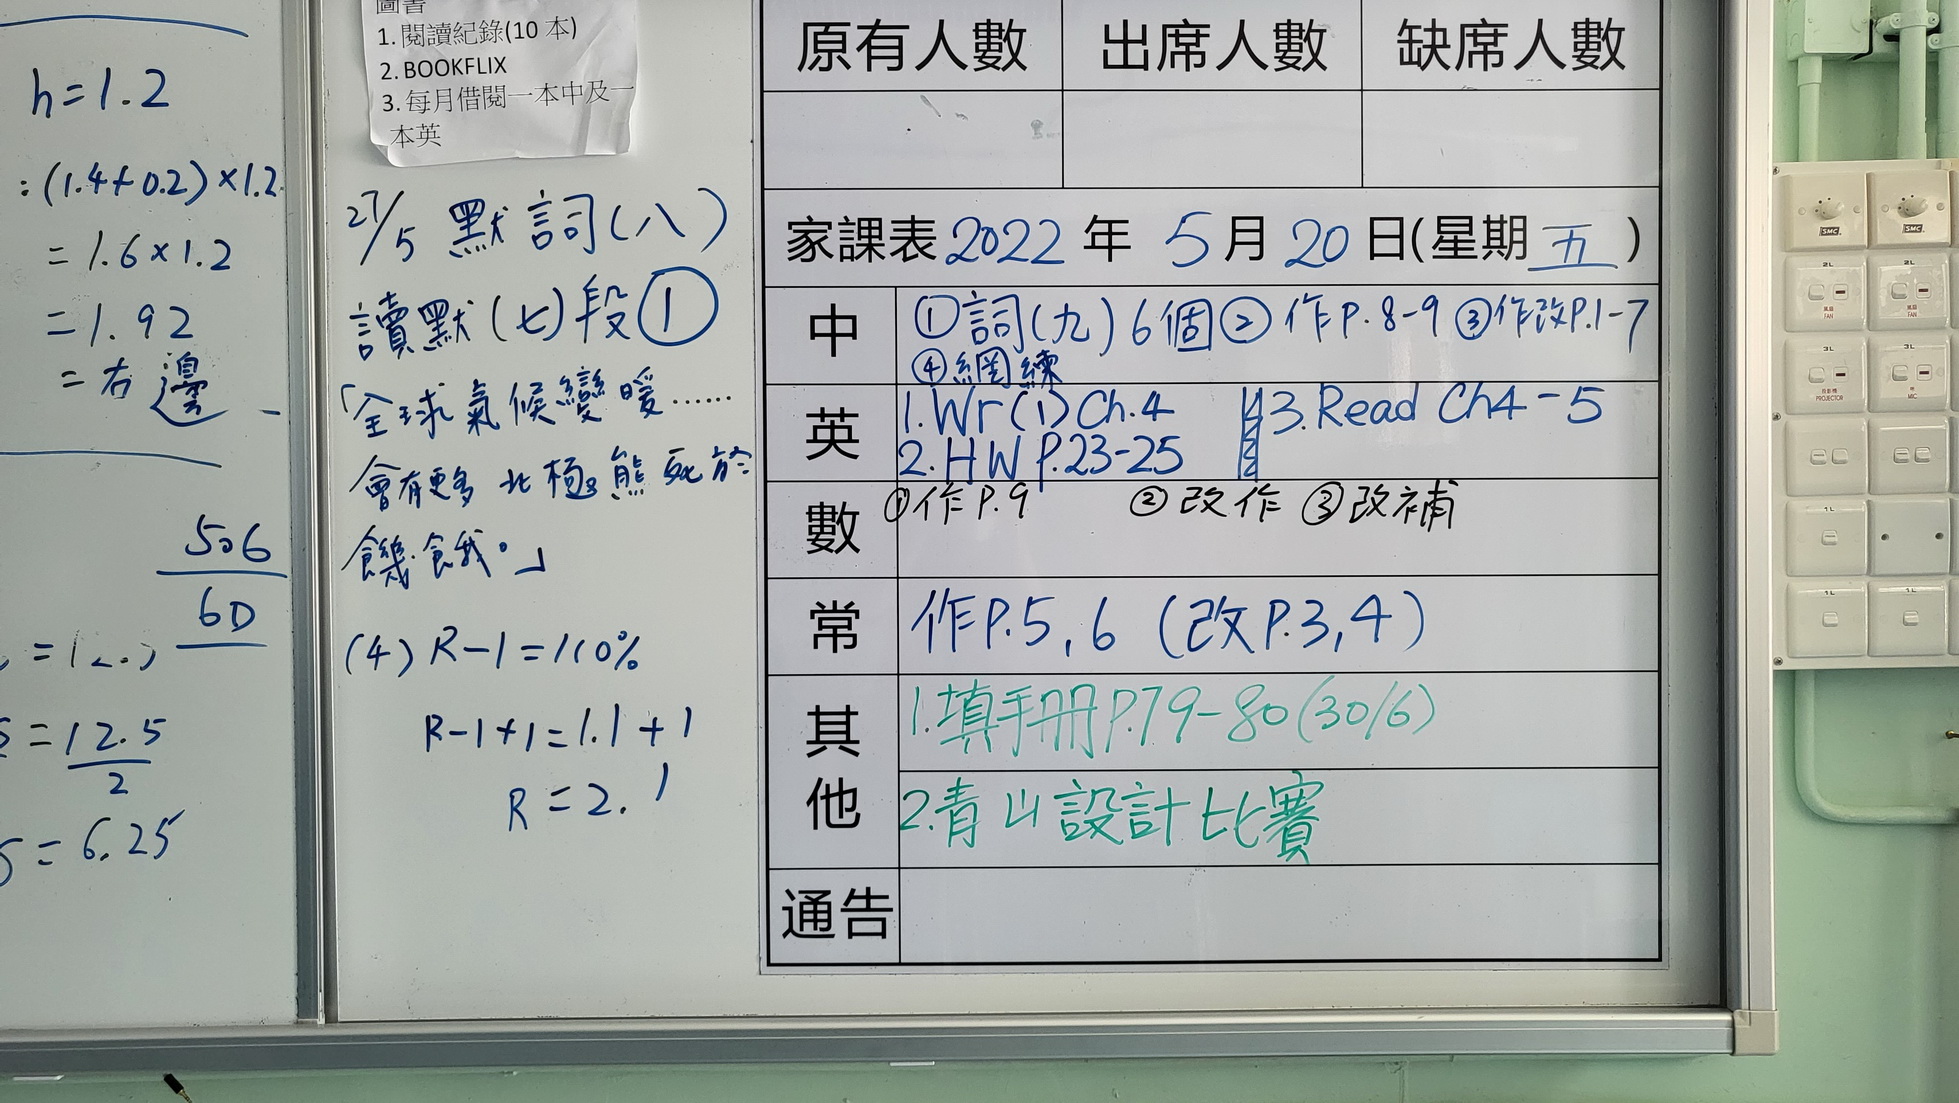 h=1.2
:(1.4+0.2)×1.2
=1.6×1.2
=1.92
=右邊
506
60
=12.5
2
=6.25
圖書
1. 閱讀紀錄(10 本)
2. BOOKFLIX
3. 每月借閱一本中及一
本英
27/5 默詞(八)
讀默(七)段①
「全球氣候變暖……
會有更多北極熊死於
饑餓。」
(4) R-1=110%
R-1+1=1.1+1
R=2.1
原有人數 出席人數 缺席人數
家課表 2022 年 5 月 20 日(星期 五 )
中 ①詞(九)6個②作P.8-9③作改P.1-7
④網練
英 1.Wr(1)Ch.4 3.Read Ch4-5
2.HW P.23-25
數 ①作P.9 ②改作 ③改補
常 作P.5,6 (改P.3,4)
其他 1.填手冊P.79-80(30/6)
2.青山設計比賽
通告
SMC SMC
2L 2L
風扇 風扇
FAN FAN
3L 3L
投影機
PROJECTOR MIC
1L 1L
1L 1L